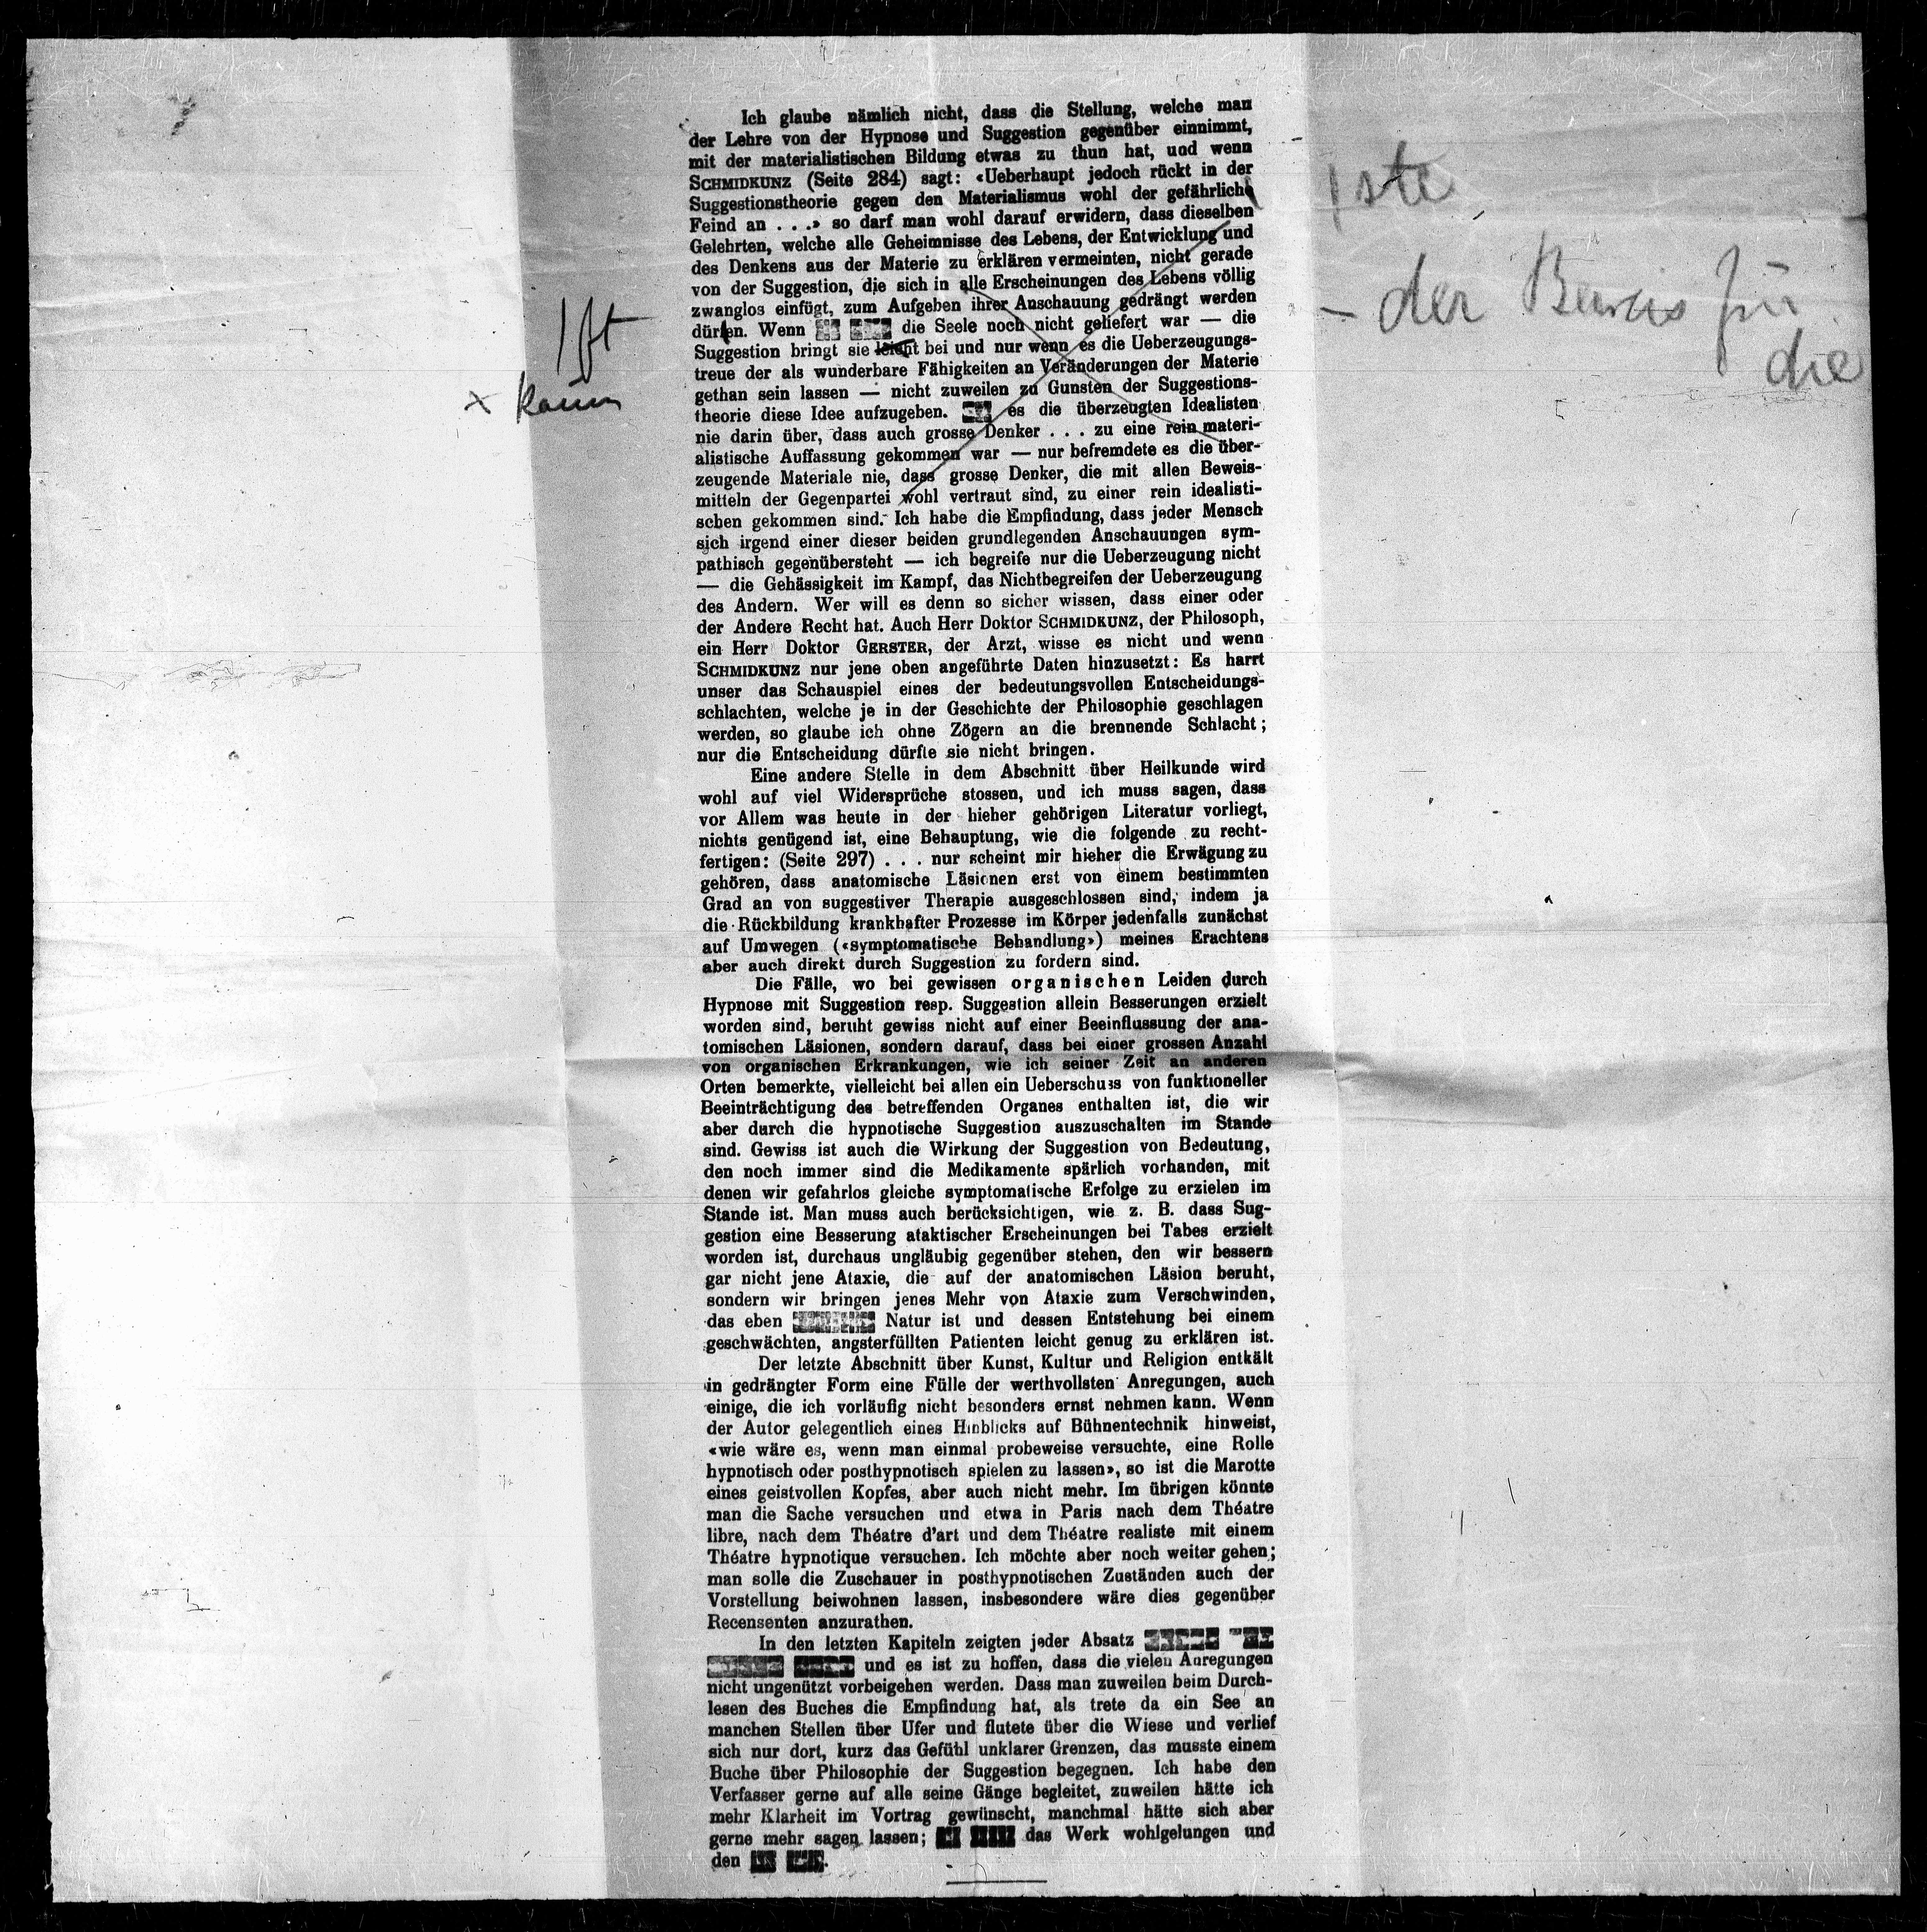 Ich glaube nämlich nicht, dass die Stellung, welche man
der Lehre von der Hypnose und Suggestion gegenüber einnimmt,
mit der materialistischen Bildung etwas zu thun hat, und wenn
SCHMIDKUNZ (Seite 284) sagt: «Ueberhaupt jedoch rückt in der
Suggestionstheorie gegen den Materialismus wohl der gefährliche
Feind an . . .» so darf man wohl darauf erwidern, dass dieselben
Gelehrten, welche alle Geheimnisse des Lebens, der Entwicklung und
des Denkens aus der Materie zu erklären vermeinten, nicht gerade
von der Suggestion, die sich in alle Erscheinungen des Lebens völlig
zwanglos einfügt, zum Aufgeben ihrer Anschauung gedrängt werden
Wenn die Seele noch nicht geliefert war — die
Suggestion bringt sie leicht bei und nur wenn es die Ueberzeugungs-
treue der als wunderbare Fähigkeiten an Veränderungen der Materie
gethan sein lassen — nicht zuweilen zu Gunsten der Suggestions-
theorie diese Idee aufzugeben. es die überzeugten Idealisten
nie darin über, dass auch grosse Denker . . . zu eine rein materi-
alistische Auffassung gekommen war — nur befremdete es die über-
zeugende Materiale nie, dass grosse Denker, die mit allen Beweis-
mitteln der Gegenpartei wohl vertraut sind, zu einer rein idealisti-
schen gekommen sind. Ich habe die Empfindung, dass jeder Mensch
sich irgend einer dieser beiden grundlegenden Anschauungen sym-
pathisch gegenübersteht — ich begreife nur die Ueberzeugung nicht
— die Gehässigkeit im Kampf, das Nichtbegreifen der Ueberzeugung
des Andern. Wer will es denn so sicher wissen, dass einer oder
der Andere Recht hat. Auch Herr Doktor SCHMIDKUNZ, der Philosoph,
ein Herr Doktor GERSTER, der Arzt, wisse es nicht und wenn
SCHMIDKUNZ nur jene oben angeführte Daten hinzusetzt: Es harrt
unser das Schauspiel eines der bedeutungsvollen Entscheidungs-
schlachten, welche je in der Geschichte der Philosophie geschlagen
werden, so glaube ich ohne Zögern an die brennende Schlacht;
nur die Entscheidung dürfte sie nicht bringen.
Eine andere Stelle in dem Abschnitt über Heilkunde wird
wohl auf viel Widersprüche stossen, und ich muss sagen, dass
vor Allem was heute in der hieher gehörigen Literatur vorliegt,
nichts genügend ist, eine Behauptung, wie die folgende zu recht-
fertigen: (Seite 297) . . . nur scheint mir hieher die Erwägung zu
gehören, dass anatomische Läsionen erst von einem bestimmten
Grad an von suggestiver Therapie ausgeschlossen sind, indem ja
die Rückbildung krankhafter Prozesse im Körper jedenfalls zunächst
auf Umwegen («symptomatische Behandlung») meines Erachtens
aber auch direkt durch Suggestion zu fordern sind.
Die Fälle, wo bei gewissen organischen Leiden durch
Hypnose mit Suggestion resp. Suggestion allein Besserungen erzielt
worden sind, beruht gewiss nicht auf einer Beeinflussung der ana-
tomischen Läsionen, sondern darauf, dass bei einer grossen Anzahl
von organischen Erkrankungen, wie ich seiner Zeit an anderen
Orten bemerkte, vielleicht bei allen ein Ueberschuss von funktioneller
Beeinträchtigung des betreffenden Organes enthalten ist, die wir
aber durch die hypnotische Suggestion auszuschalten im Stande
sind. Gewiss ist auch die Wirkung der Suggestion von Bedeutung,
den noch immer sind die Medikamente spärlich vorhanden, mit
denen wir gefahrlos gleiche symptomatische Erfolge zu erzielen im
Stande ist. Man muss auch berücksichtigen, wie z. B. dass Sug-
gestion eine Besserung ataktischer Erscheinungen bei Tabes erzielt
worden ist, durchaus ungläubig gegenüber stehen, den wir bessern
gar nicht jene Ataxie, die auf der anatomischen Läsion beruht,
sondern wir bringen jenes Mehr von Ataxie zum Verschwinden,
das eben Natur ist und dessen Entstehung bei einem
geschwächten, angsterfüllten Patienten leicht genug zu erklären ist.
Der letzte Abschnitt über Kunst, Kultur und Religion entkält
in gedrängter Form eine Fülle der werthvollsten Anregungen, auch
einige, die ich vorläufig nicht besonders ernst nehmen kann. Wenn
der Autor gelegentlich eines Hinblicks auf Bühnentechnik hinweist,
«wie wäre es, wenn man einmal probeweise versuchte, eine Rolle
hypnotisch oder posthypnotisch spielen zu lassen», so ist die Marotte
eines geistvollen Kopfes, aber auch nicht mehr. Im übrigen könnte
man die Sache versuchen und etwa in Paris nach dem Théatre
libre, nach dem Théatre d'art und dem Théatre realiste mit einem
Théatre hypnotique versuchen. Ich möchte aber noch weiter gehen;
man solle die Zuschauer in posthypnotischen Zuständen auch der
Vorstellung beiwohnen lassen, insbesondere wäre dies gegenüber
Recensenten anzurathen.
In den letzten Kapiteln zeigten jeder Absatz
und es ist zu hoffen, dass die vielen Anregungen
nicht ungenützt vorbeigehen werden. Dass man zuweilen beim Durch-
lesen des Buches die Empfindung hat, als trete da ein See an
manchen Stellen über Ufer und flutete über die Wiese und verlief
sich nur dort, kurz das Gefühl unklarer Grenzen, das musste einem
Buche über Philosophie der Suggestion begegnen. Ich habe den
Verfasser gerne auf alle seine Gänge begleitet, zuweilen hätte ich
mehr Klarheit im Vortrag gewünscht, manchmal hätte sich aber
gerne mehr sagen lassen; das Werk wohlgelungen und
den
ste
- der Beweis für
die
ft
x kaum